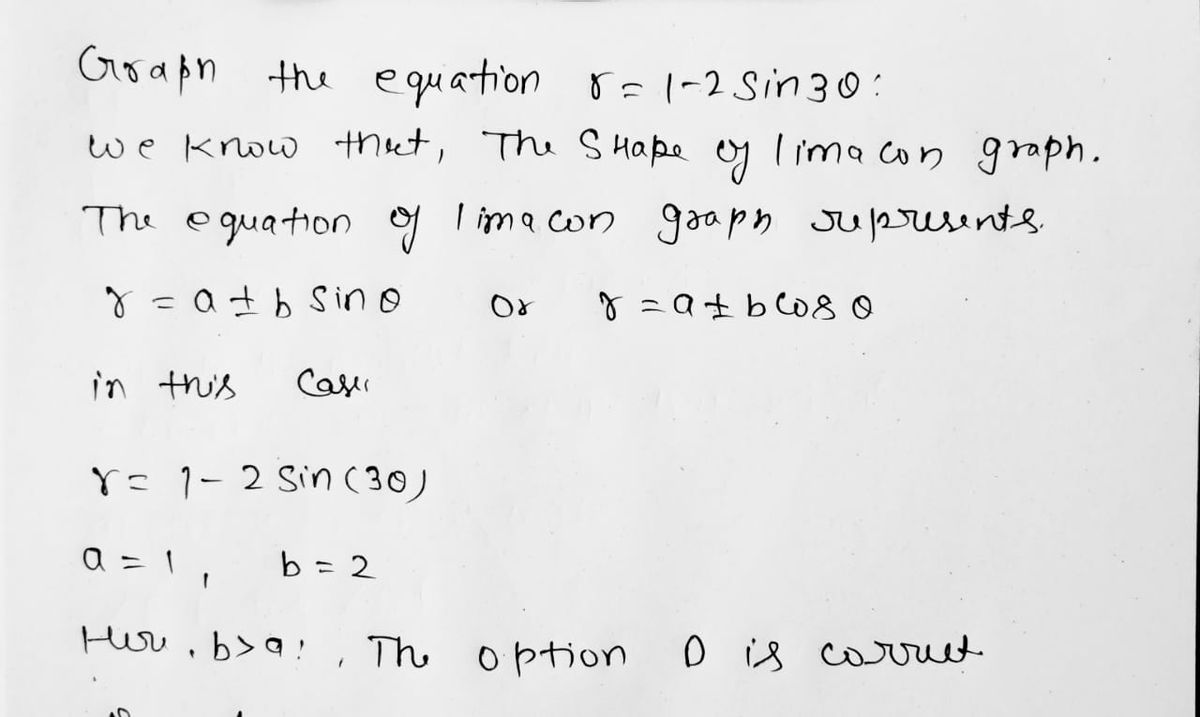 Graph the equation r = 1-2 Sin3θ:
we know that, The SHape of limacon graph.
The equation of limacon graph represents.
r = a ± b Sin θ Or r = a ± b Cos θ
in this Case
r = 1 - 2 Sin (3θ)
a = 1, b = 2
Here, b>a!, The option D is correct